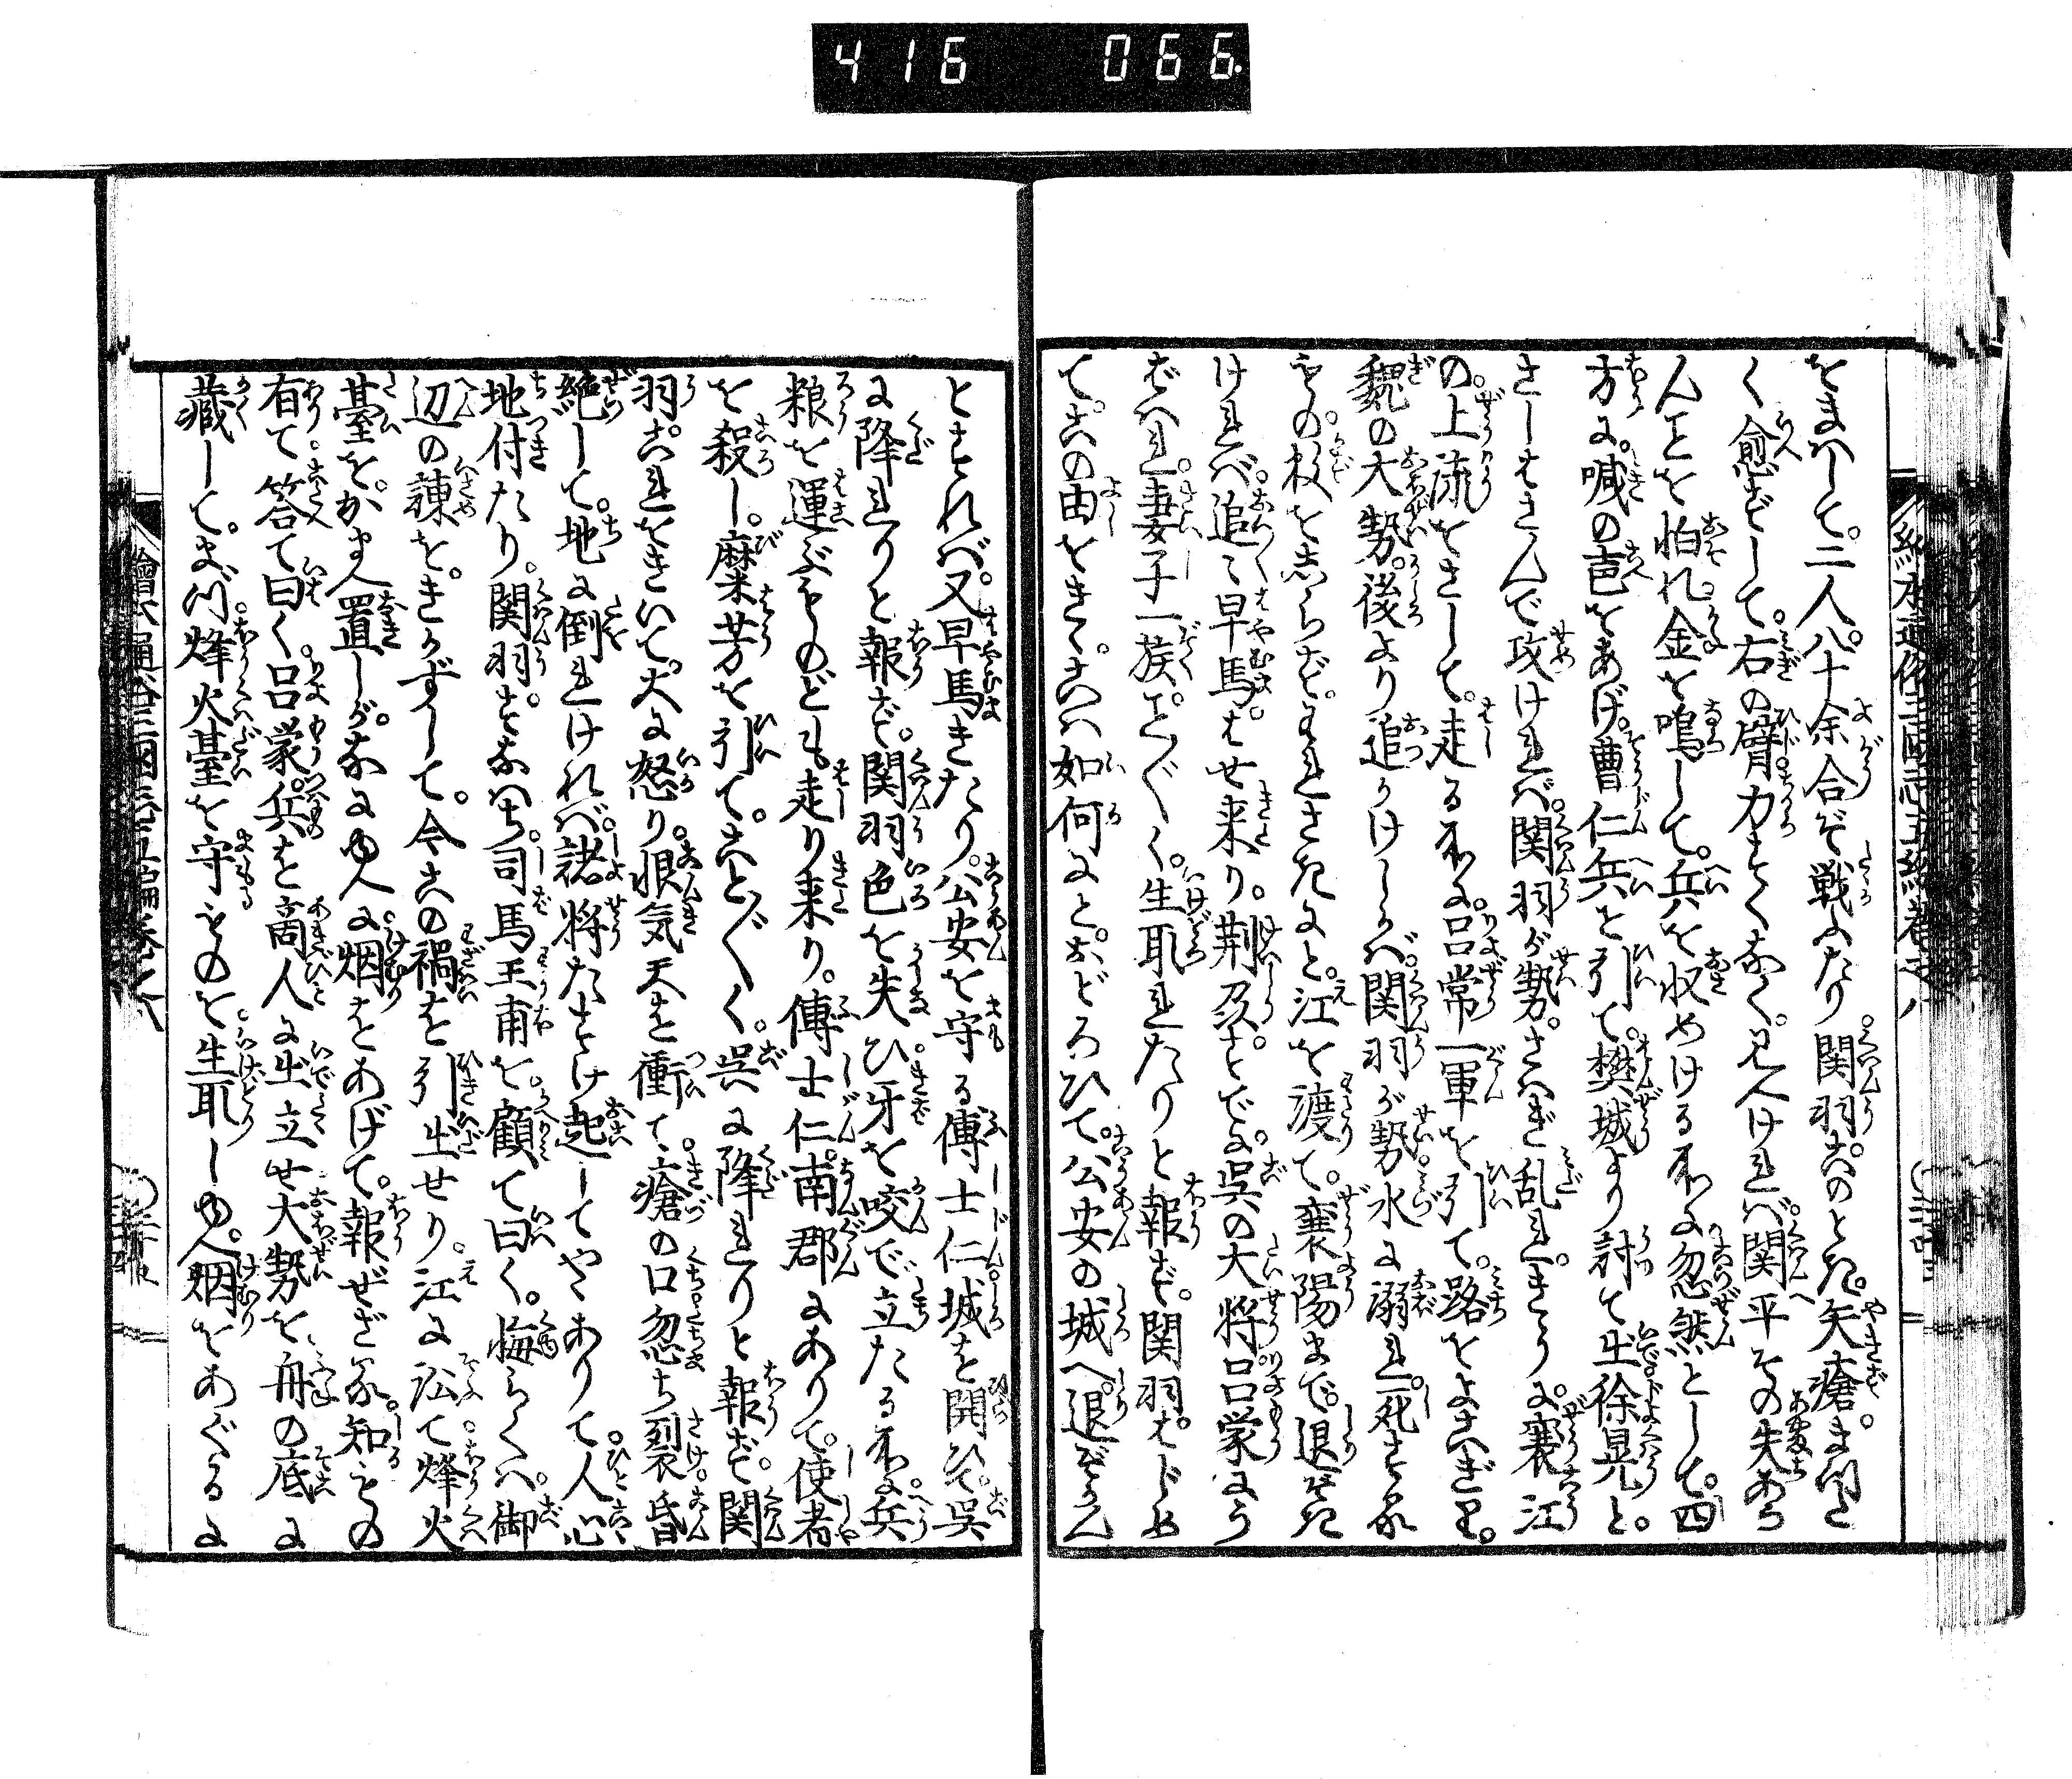 416 066.
をまハして。二人。八十余合ぞ戦ふたり関羽。このとき。矢瘡。まつた
く愈ずして。右の臂。力すくなく。見えけれバ。関平その失あら
んことを怕れ。金を鳴して。兵を収めける所に忽然として。四
方に。喊の声をあげ。曹仁兵を引て。樊城より討て出徐晃と。
さしはさんで攻けれバ。関羽が勢。さハぎ乱れ。きうに。襄江
の。上流をさして。走る所に。呂常一軍を引て。路をよこぎり。
魏の大勢。後より追かけしかバ。関羽が勢水に溺れ。死する
ものゝ。数をしらず。すでにと。江を渡て。襄陽まで。退ぞき
けれバ。追〻早馬。はせ来り。荊州。すでに。呉の大将呂蒙にう
ばハれ。妻子一族。こと〴〵く。生取れたりと報ず。関羽。はじめ
て。この由をきゝ。こハ如何にと。おどろひて。公安の城へ。退ぞかん
とすれバ。又早馬きたり。公安を守る傅士仁城を開ひて。呉
に降れりと報ず。関羽色を失ひ牙を咬で立たる所に。兵
粮を運ぶものども走り来り。傅士仁。南郡にありて。使者
を殺し。麋芳を引て。こと〴〵く。呉に降れりと報ず。関
羽。これをきいて。大に怒り。恨気天を衝て。瘡の口忽ち裂。昏
絶して。地に倒れけれバ。諸将たすけ起してやゝありて。人心
地付たり。関羽。すなハち。司馬王甫を。顧て曰く。悔らくハ。御
辺の諌を。きかずして。今この禍を引出せり。江に沿て。烽火
臺を。かまへ置しが。なにゆへに。烟をあげて。報ぜざる。知もの
有て。答て曰く。呂蒙。兵を商人に出立せ大勢を。舟の底に
蔵して。まづ。烽火臺を守ものを。生取しゆへ。烟をあぐるに
繪本通俗三国志五編巻之八